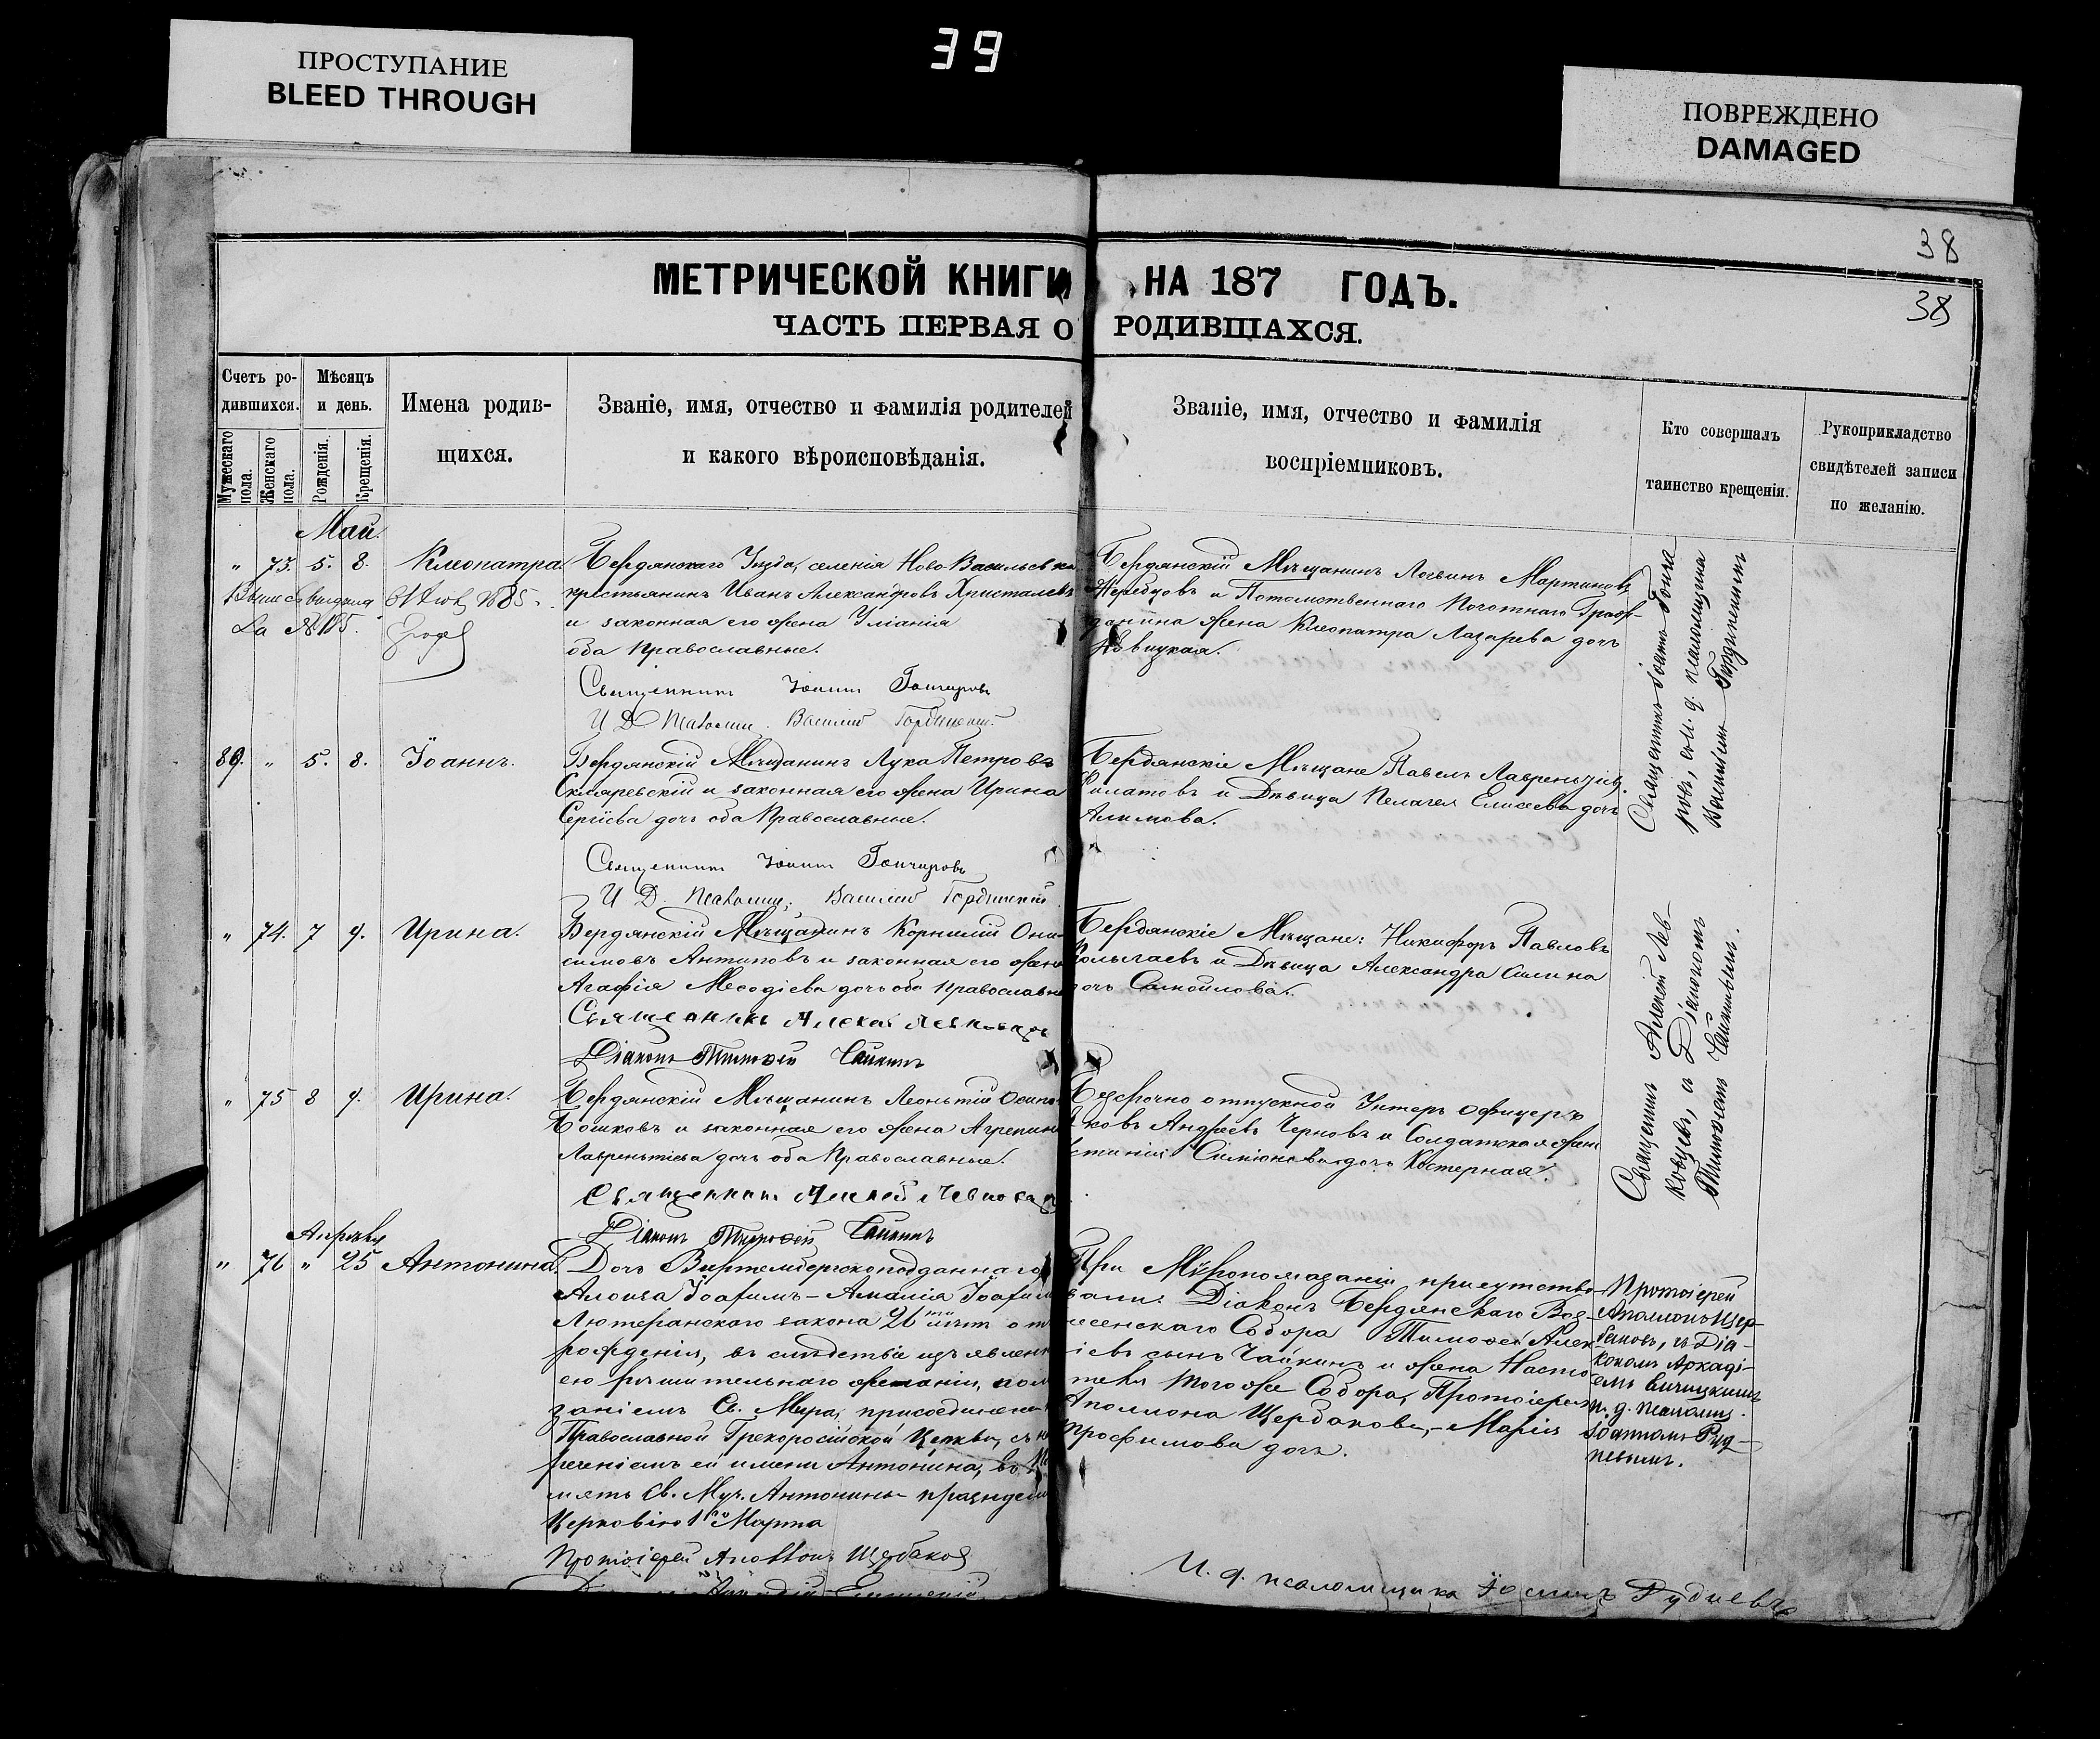 ПРОСТУПАНИЕ
BLEED THROUGH
39
ПОВРЕЖДЕНО
DAMAGED
38
38
МЕТРИЧЕСКОЙ КНИГИ НА 187 ГОДЪ.
ЧАСТЬ ПЕРВАЯ О РОДИВШАХСЯ.
Счетъ ро-
дившихся.
Мужескаго пола.
Женскаго пола.
Мѣсяцъ
и день.
Рожденія.
Крещенія.
Имена родив-
щихся.
Званіе, имя, отчество и фамилія родителей
и какого вѣроисповѣданія.
Званіе, имя, отчество и фамилія
воспріемниковъ.
Кто совершалъ
таинство крещенія.
Рукоприкладство
свидѣтелей записи
по желанію.
Май.
" 73. 5. 8. Клеопатра
За № 185.
Бердянскаго Уѣзда, селенія Ново-Васильевка
крестьянинъ Иванъ Александровъ Христалевъ
и законная его жена Уліанія
оба Православные.
Священникъ Іоаннъ Гончаровъ
И Д Псаломщ. Василій Гординскій
Бердянскій Мѣщанинъ Логвинъ Мартиновъ
Жеребцовъ и Потомственнаго Почотнаго Граж-
данина жена Клеопатра Лазарева дочь
Священникъ Іоаннъ Гонча
ровъ, съ и. д. псаломщика
Василіемъ Гординскимъ
89. " 5. 8. Іоаннъ.
Бердянскій Мѣщанинъ Лука Петровъ
Скляревскій и законная его жена Ирина
Сергіева дочь оба Православные.
Священникъ Іоаннъ Гончаровъ
И Д. Псаломщ. Василій Гординскій
Бердянскіе Мѣщане Павелъ Лаврентіев.
Филатовъ и Дѣвица Пелагея Елисеева дочь
Алимова.
" 74. 7 9. Ирина.
Бердянскій Мѣщанинъ Корнилій Они-
симовъ Антиповъ и законная его жена
Агафія Меѳодіева дочь оба Православные
Священникъ Алексѣй Левковцевъ
Діаконъ Тимоѳей Чайкинъ
Бердянскіе Мѣщане: Никифоръ Павловъ
и Дѣвица Александра Силина
дочь Самойлова.
Священникъ Алексѣй Лев-
ковцевъ, съ Діакономъ
Тимоѳеемъ Чайкинымъ.
" 75 8 9. Ирина.
Бердянскій Мѣщанинъ Леонтій Осипов
Бошковъ и законная его жена Агрепина
Лаврентіева дочь оба Православные.
Священникъ Алексѣй Левковцевъ
Діаконъ Тимоѳей Чайкинъ
Безсрочно отпускной Унтеръ Офицеръ
Яковъ Андреевъ Черновъ и Солдатская жена
Симіонова дочь Костерная.
Апрѣль
" 76 " 25 Антонина.
Дочь Виртембергскоподданнаго
Алоиза Іоафимъ - Амалія Іоафим
Лютеранскаго закона 26ти лѣтъ отъ
рожденія, въ слѣдствіе изъявленн
ею рѣшительнаго желанія, пом
заніемъ Св. Мира, присоединена к
Православной Грекоросійской Церкви, съ на
реченіемъ ей имени Антонина, во па
мять Св. Муч. Антонины празднуем
Церковію 1го Марта
Протоіерей Аполлонъ Щербаковъ
При Мѵропомазаніи присутство-
вали: Діаконъ Бердянскаго Воз-
несенскаго Собора Тимоѳей Алек-
сіевъ сынъ Чайкинъ и жена Насто-
теля того же Собора, Протоіерея
Аполлона Щербакова, - Марія
Трофимова дочь.
Протоіерей
Аполлонъ Щер-
баковъ, съ Діа-
кономъ Аркаді-
емъ
и. д. псаломщ.
Іоанномъ Руд-
невымъ.
И. д. псаломщика Рудневъ